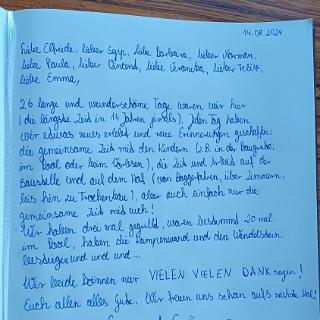 14.08.2024
Liebe Elfriede, lieber Sepp, liebe Barbara, lieber Norman,
liebe Paula, lieber Vincent, liebe Veronika, lieber Felix,
liebe Emma,
26 lange und wunderschöne Tage waren wir hier
(die längste Zeit in 11 Jahren jemals). Jeden Tag haben
wir etwas neues erlebt und neue Erinnerungen geschaffen:
die gemeinsame Zeit mit den Kindern (z.B. in der Baugrube,
im Pool oder beim Vorlesen), die Zeit und Arbeit auf der
Baustelle und auf dem Hof (von Baggerfahren, über Zimmern,
bis hin zu Trockenbau), aber auch einfach nur die
gemeinsame Zeit mit euch!
Wir haben drei mal gegrillt, waren bestimmt 20 mal
im Pool, haben die Kampenwand und den Wendelstein
und und und...
Wir beide können nur VIELEN VIELEN DANK sagen!
Euch allen alles Gute. Wir freuen uns schon aufs nächste Mal!